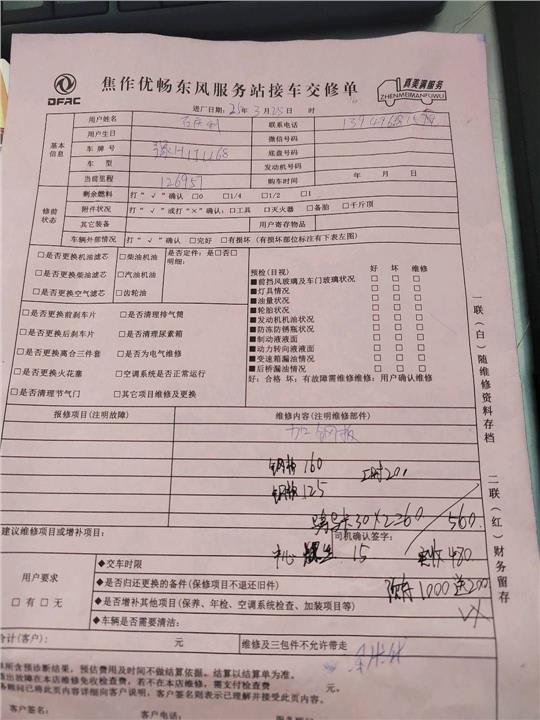 DFAC
焦作优畅东风服务站接车交修单
真美满服务
ZHENMEIMANFUWU
进厂日期: 25年 3月25日 时
基本信息
用户姓名
联系电话
用户生日
微信号码
车牌号
底盘号码
车 型
发动机号码
当前里程 126957
购车时间 年 月 日
修前状态
剩余燃料 打“√”确认 □0 □1/4 □1/2 □1
附件状况 打“√”或打“×”确认:□工具 □灭火器 □备胎 □千斤顶
其它装备
用户寄存物品
车辆外部情况 打“√”确认 □完好 □有损坏(有损坏部位标注有下表左图)
□是否更换机油滤芯 □柴油机油 是否定件: 是□否□
明细:
□是否更换柴油滤芯 □汽油机油
□是否更换空气滤芯 □齿轮油
□是否更换前刹车片 □是否清理排气筒
□是否更换后刹车片 □是否清理尿素箱
□是否更换离合三件套 □是否为电气维修
□是否更换火花塞 □空调系统是否正常运行
□是否清理节气门 □其它项目维修及更换
预检(目视) 好 坏 维修
■前挡风玻璃及车门玻璃状况 □ □ □
■灯具情况 □ □ □
■油量状况 □ □ □
■轮胎状况 □ □ □
■发动机机油状况 □ □ □
■防冻防锈瓶状况 □ □ □
■制动液液面 □ □ □
■动力转向液液面 □ □ □
■变速箱漏油情况 □ □ □
■后桥漏油情况 □ □ □
好:合格 坏:有故障需维修维修:用户确认维修
报修项目(注明故障)
维修内容(注明维修部件)
加钢板
钢板160 工时200
钢板125
骑马卡30×2=60 560.
建议维修项目或增补项目:
司机确认签字:
中心螺丝 15 实收480
用户要求
□有 □无
◆交车时限
◆是否归还更换的备件(保修项目不退还旧件)
预存1000送200
◆是否增补其他项目(保养、年检、空调系统检查、加装项目等)
VX
◆车辆是否需要清洁:
合计(客户): 元
维修及三包件不允许带走
单所含预诊断结果,预估费用及时间不做结算依据。结算以结算单为准。
查出故障在本店维修免收检查费。若不在本店维修,需支付检查费 元。
务顾问已将此页内容详细向客户说明,客户签名则表示已理解并接受此页内容。
客户签名:
客户电话:
一联(白)随维修资料存档
二联(红)财务留存